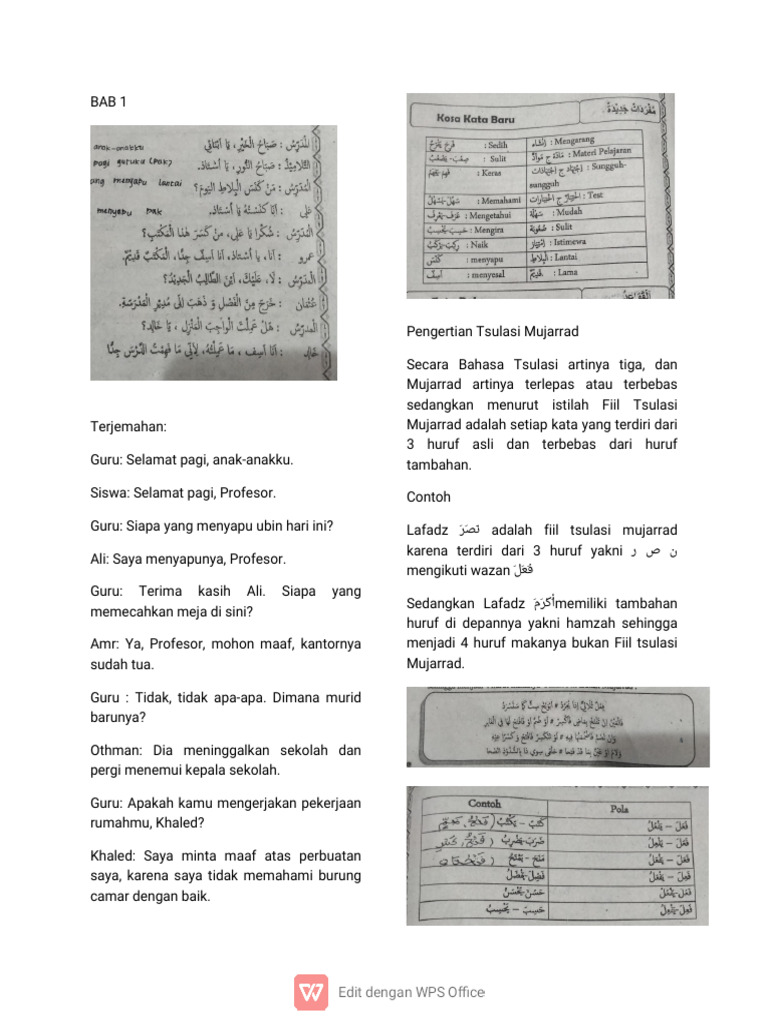 BAB 1
anak-anakku
pagi guruku (pak)
ang menyapu lantai
menyapu pak
المُدَرِّسُ : صَبَاحُ الْخَيْرِ، يَا أَبْنَائِي
التَّلَامِيْذُ : صَبَاحُ النُّورِ، يَا أُسْتَاذ.
المُدَرِّسُ : مَنْ كَنَسَ الْبِلَاطَ الْيَوْمَ؟
عَلِي : أَنَا كَنَسْتُهُ يَا أُسْتَاذ.
المُدَرِّسُ : شُكْرًا يَا عَلِي، مَنْ كَسَرَ هَذَا الْمَكْتَبَ؟
عمرو : أَنَا، يَا أُسْتَاذ، أَنَا آسِفٌ جِدًّا، الْمَكْتَبُ قَدِيْمٌ.
المُدَرِّسُ : لَا، عَلَيْكَ، أَيْنَ الطَّالِبُ الْجَدِيْدُ؟
عُثْمَان : خَرَجَ مِنَ الْفَصْلِ وَ ذَهَبَ إِلَى مُدِيْرِ الْمَدْرَسَةِ.
المُدَرِّسُ : هَلْ عَمِلْتَ الْوَاجِبَ الْمَنْزِلِ، يَا خَالِد؟
خَالِد : أَنَا آسِف، مَا عَمِلْتُهُ، لِأَنِّي مَا فَهِمْتُ الدَّرْسَ جِدًّا
Terjemahan:
Guru: Selamat pagi, anak-anakku.
Siswa: Selamat pagi, Profesor.
Guru: Siapa yang menyapu ubin hari ini?
Ali: Saya menyapunya, Profesor.
Guru: Terima kasih Ali. Siapa yang
memecahkan meja di sini?
Amr: Ya, Profesor, mohon maaf, kantornya
sudah tua.
Guru : Tidak, tidak apa-apa. Dimana murid
barunya?
Othman: Dia meninggalkan sekolah dan
pergi menemui kepala sekolah.
Guru: Apakah kamu mengerjakan pekerjaan
rumahmu, Khaled?
Khaled: Saya minta maaf atas perbuatan
saya, karena saya tidak memahami burung
camar dengan baik.
Kosa Kata Baru
مُفْرَدَاتٌ جَدِيْدَةٌ
: Sedih
: Mengarang
: Sulit
: Materi Pelajaran
: Keras
: Sungguh-
sungguh
: Memahami
: Test
: Mengetahui
: Mudah
: Mengira
: Sulit
: Naik
: Istimewa
كَنَسَ : menyapu
الْبِلَاطُ : Lantai
آسِفٌ : menyesal
قَدِيْمٌ : Lama
Pengertian Tsulasi Mujarrad
Secara Bahasa Tsulasi artinya tiga, dan
Mujarrad artinya terlepas atau terbebas
sedangkan menurut istilah Fiil Tsulasi
Mujarrad adalah setiap kata yang terdiri dari
3 huruf asli dan terbebas dari huruf
tambahan.
Contoh
Lafadz نَصَرَ adalah fiil tsulasi mujarrad
karena terdiri dari 3 huruf yakni ن ص ر
mengikuti wazan فَعَلَ
Sedangkan Lafadz أَكرَمَ memiliki tambahan
huruf di depannya yakni hamzah sehingga
menjadi 4 huruf makanya bukan Fiil tsulasi
Mujarrad.
Contoh Pola
كَتَبَ – يَكْتُبُ فَعَلَ – يَفْعُلُ
ضَرَبَ – يَضْرِبُ فَعَلَ – يَفْعِلُ
مَنَحَ – يَمْنَحُ فَعَلَ – يَفْعَلُ
فَعِلَ – يَفْعَلُ
حَسُنَ – يَحْسُنُ فَعُلَ – يَفْعُلُ
حَسِبَ – يَحْسِبُ فَعِلَ – يَفْعِلُ
Edit dengan WPS Office